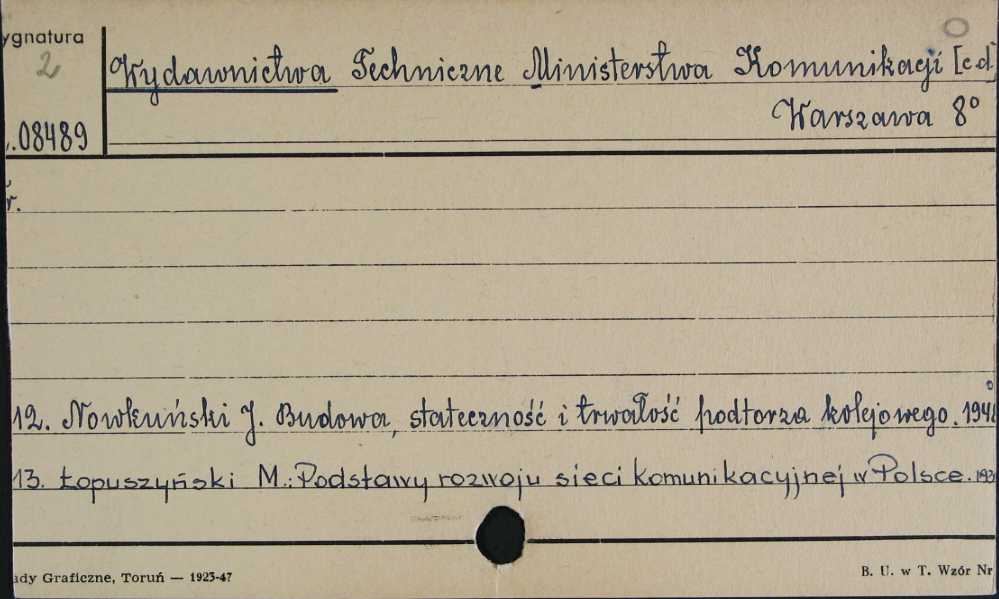 ygnatura
2
Wydawnictwa Techniczne Ministerstwa Komunikacji [c.d.
Warszawa 8°
.08489
r.
12. Nowkuński J. Budowa, stateczność i trwałość podtorza kolejowego.
13. Łopuszyński M.: Podstawy rozwoju sieci komunikacyjnej w Polsce.
ady Graficzne, Toruń — 1923-47
B. U. w T. Wzór Nr